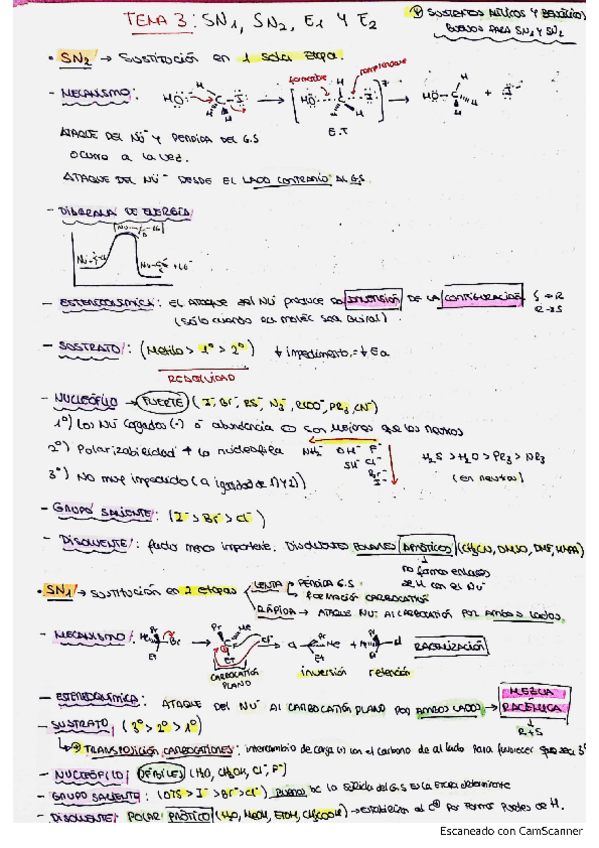 TEMA 3: SN1, SN2, E1 Y E2
SUSTRATOS ALÍLICOS Y BENCÍLICOS
BUENOS PARA SN1 Y SN2
• SN2 → SUSTITUCIÓN EN 1 SOLA ETAPA.
- MECANISMO:
formándose
rompiéndose
HO:⁻
H
C
I
HO
C
I
≠
HO
C
H
+ I⁻
E.T
ATAQUE DEL NU⁻ Y PÉRDIDA DEL G.S
OCURRE A LA VEZ.
ATAQUE DEL NU⁻ DESDE EL LADO CONTRARIO AL G.S
- DIAGRAMA DE ENERGÍA
- ESTEREOQUÍMICA: EL ATAQUE DEL NU PRODUCE INVERSIÓN DE LA CONFIGURACIÓN S → R
R → S
(Sólo cuando la moléc sea quiral).
- SUSTRATO: (Metilo > 1º > 2º) ↓ impedimento = ↓ Ea
REACTIVIDAD
- NUCLEÓFILO → FUERTE (I⁻, Br⁻, RS⁻, N3⁻, RCOO⁻, PR3, CN⁻)
1º) Los NU cargados (-) ó abundancia e⁻ son mejores que los neutros
2º) Polarizabilidad ↑ la nucleofilia NH2⁻ OH⁻ F⁻
SH⁻ Cl⁻
Br⁻
I⁻
H2S > H2O > PR3 > NR3
(en neutros)
3º) No muy impedido (a igualdad de 1 y 2)
- GRUPO SALIENTE: (I⁻ > Br⁻ > Cl⁻)
- DISOLVENTE: factor menos importante. DISOLVENTES POLARES APRÓTICOS (CH3CN, DMSO, DMF, HMPA)
no forman enlaces
de H con el Nu⁻
• SN1 → SUSTITUCIÓN EN 2 ETAPAS
LENTA → PÉRDIDA G.S
FORMACIÓN CARBOCATIÓN
RÁPIDA → ATAQUE NU: AL CARBOCATIÓN POR AMBOS LADOS.
- MECANISMO:
Pr
Me
Br
Et
Pr
Me
Et
Cl⁻
Cl
Pr
Me
Et
+ Me
Pr
Cl
Et
RACEMIZACIÓN
CARBOCATIÓN
PLANO
inversión
retención
- ESTEREOQUÍMICA: ATAQUE DEL NU⁻ AL CARBOCATIÓN PLANO POR AMBOS LADOS → MEZCLA
RACÉMICA
R + S
- SUSTRATO (3º > 2º > 1º)
TRANSPOSICIÓN CARBOCATIONES: intercambio de carga (+) con el carbono de al lado para favorecer que sea 3º
- NUCLEÓFILO: DÉBILES (H2O, CH3OH, Cl⁻, F⁻)
- GRUPO SALIENTE: (OTS > I⁻ > Br⁻ > Cl⁻) BUENO bc la salida del G.S es la etapa determinante
- DISOLVENTE: POLAR PRÓTICO (H2O, MeOH, EtOH, CH3COOH) → estabilizan al C⁺ por formar Puentes de H.
Escaneado con CamScanner